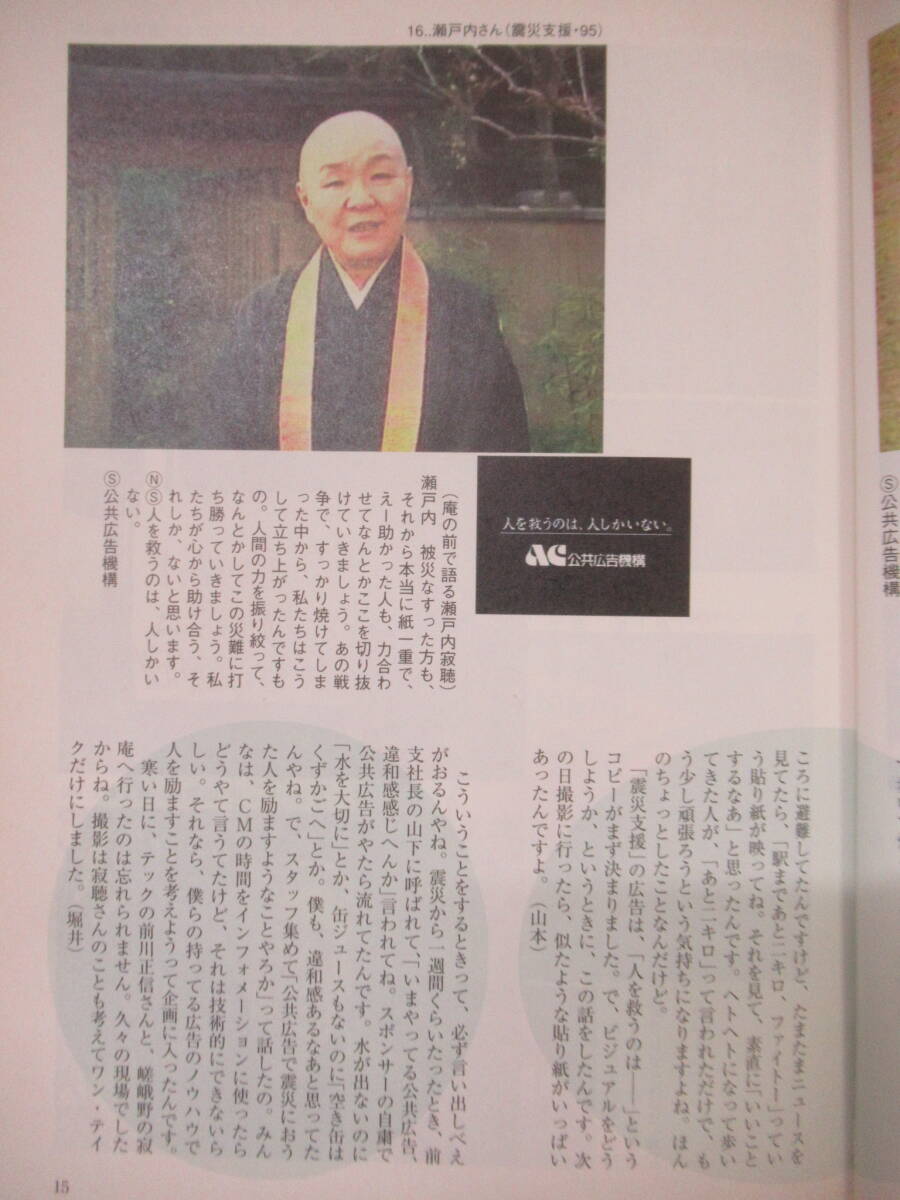 16..瀬戸内さん(震災支援・95)
人を救うのは、人しかいない。
AC公共広告機構
(庵の前で語る瀬戸内寂聴)
瀬戸内　被災なすった方も、
それから本当に紙一重で、
えー助かった人も、力合わ
せてなんとかここを切り抜
けていきましょう。あの戦
争で、すっかり焼けてしま
った中から、私たちはこう
して立ち上がったんですも
の。人間の力を振り絞って、
なんとかしてこの災難に打
ち勝っていきましょう。私
たちが心から助け合う、そ
れしか、ないと思います。
ⓃⓈ人を救うのは、人しかい
ない。
Ⓢ公共広告機構
ころに避難してたんですけど、たまたまニュースを
見てたら、「駅まであと二キロ、ファイトー」ってい
う貼り紙が映ってね。それを見て、素直に「いいこと
するなあ」と思ったんです。ヘトヘトになって歩い
てきた人が、「あと二キロ」って言われただけで、も
う少し頑張ろうという気持ちになりますよね。ほん
のちょっとしたことなんだけど。
「震災支援」の広告は、「人を救うのは――」という
コピーがまず決まりました。で、ビジュアルをどう
しようか、というときに、この話をしたんです。次
の日撮影に行ったら、似たような貼り紙がいっぱい
あったんですよ。(山本)
こういうことをするときって、必ず言い出しべえ
がおるんやね。震災から一週間くらいたったとき、前
支社長の山下に呼ばれて、「いまやってる公共広告、
違和感感じへんか」言われてね。スポンサーの自粛で
公共広告がやたら流れてたんです。水が出ないのに
「水を大切に」とか、缶ジュースもないのに「空き缶は
くずかごへ」とか。僕も、違和感あるなあと思ってた
んやね。で、スタッフ集めて「公共広告で震災におう
た人を励ますようなことやろか」って話したの。みん
なは、CMの時間をインフォメーションに使ったら
どうやて言うてたけど、それは技術的にできないら
しい。それなら、僕らの持ってる広告のノウハウで
人を励ますことを考えようって企画に入ったんです。
寒い日に、テックの前川正信さんと、嵯峨野の寂
庵へ行ったのは忘れられません。久々の現場でした
からね。撮影は寂聴さんのことも考えてワン・テイ
クだけにしました。(堀井)
15
Ⓢ公共広告機構